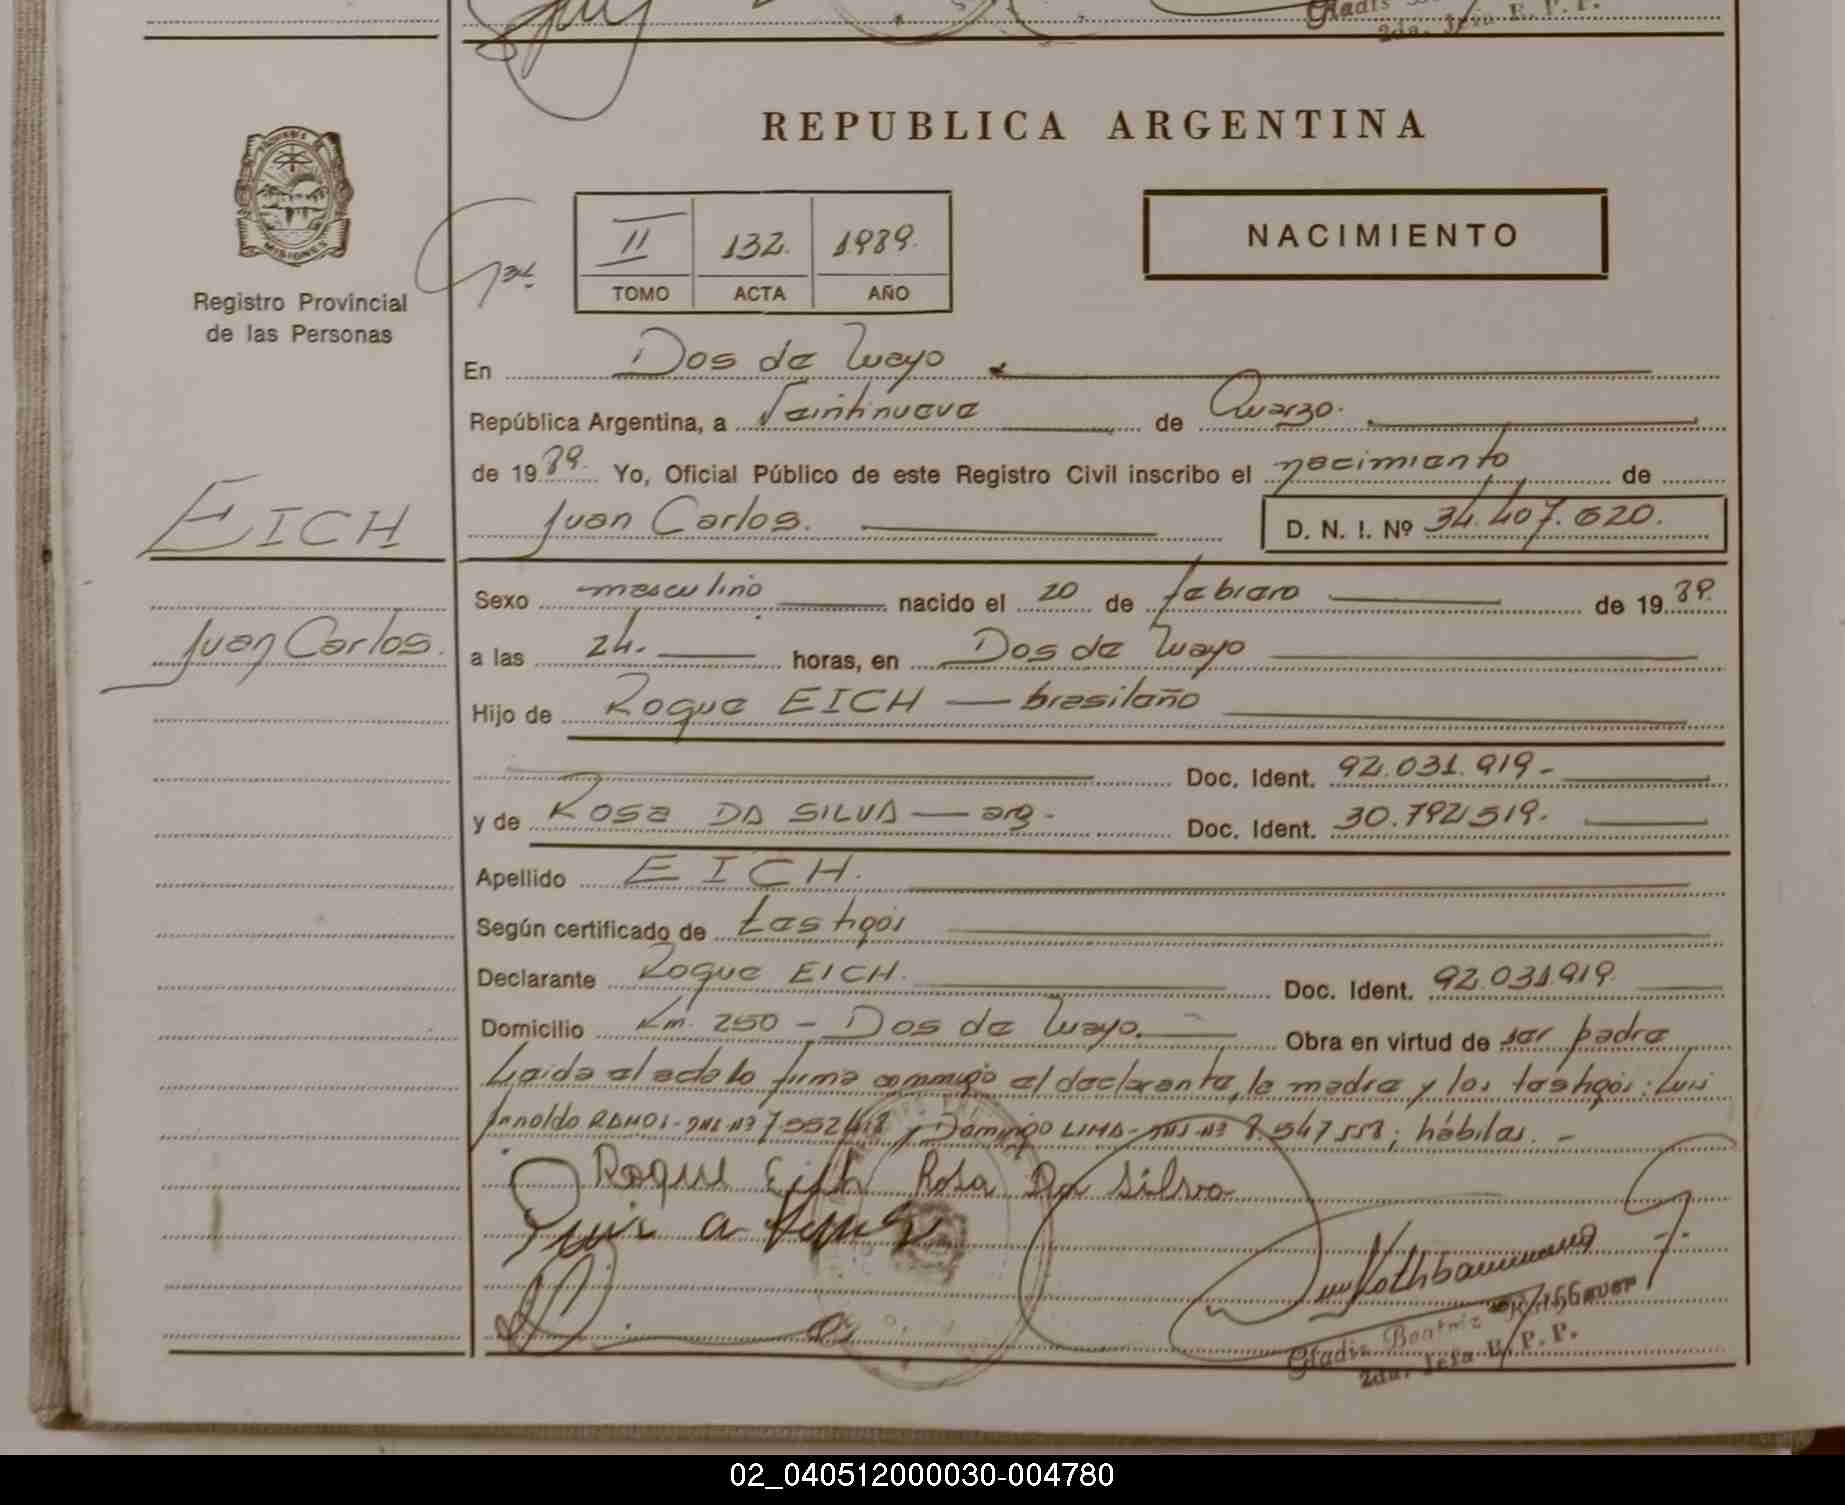 REPUBLICA ARGENTINA
MISIONES
Registro Provincial
de las Personas
II 132. 1989.
TOMO ACTA AÑO
NACIMIENTO
En Dos de Mayo
República Argentina, a Veintinueve de Marzo.
de 1989. Yo, Oficial Público de este Registro Civil inscribo el nacimiento de
EICH
Juan Carlos. D. N. I. Nº 34.407.620.
Sexo masculino nacido el 20 de febrero de 1989.
Juan Carlos.
a las 24. horas, en Dos de Mayo
Hijo de Roque EICH — brasileño
Doc. Ident. 92.031.919-
y de Rosa DA SILVA — arg. Doc. Ident. 30.792.519.
Apellido EICH.
Según certificado de testigos
Declarante Roque EICH. Doc. Ident. 92.031.919.
Domicilio Km. 250 - Dos de Mayo. Obra en virtud de ser padre
Leida el acta lo firma conmigo el declarante, la madre y los testigos: Luis
Arnoldo RAMOS- y Domingo LIMA- 8.547.558; hábiles. -
Roque Eich Rosa Da Silva
Luis A
Gladis Beatriz
2da. Jefa R. P. P.
02_040512000030-004780